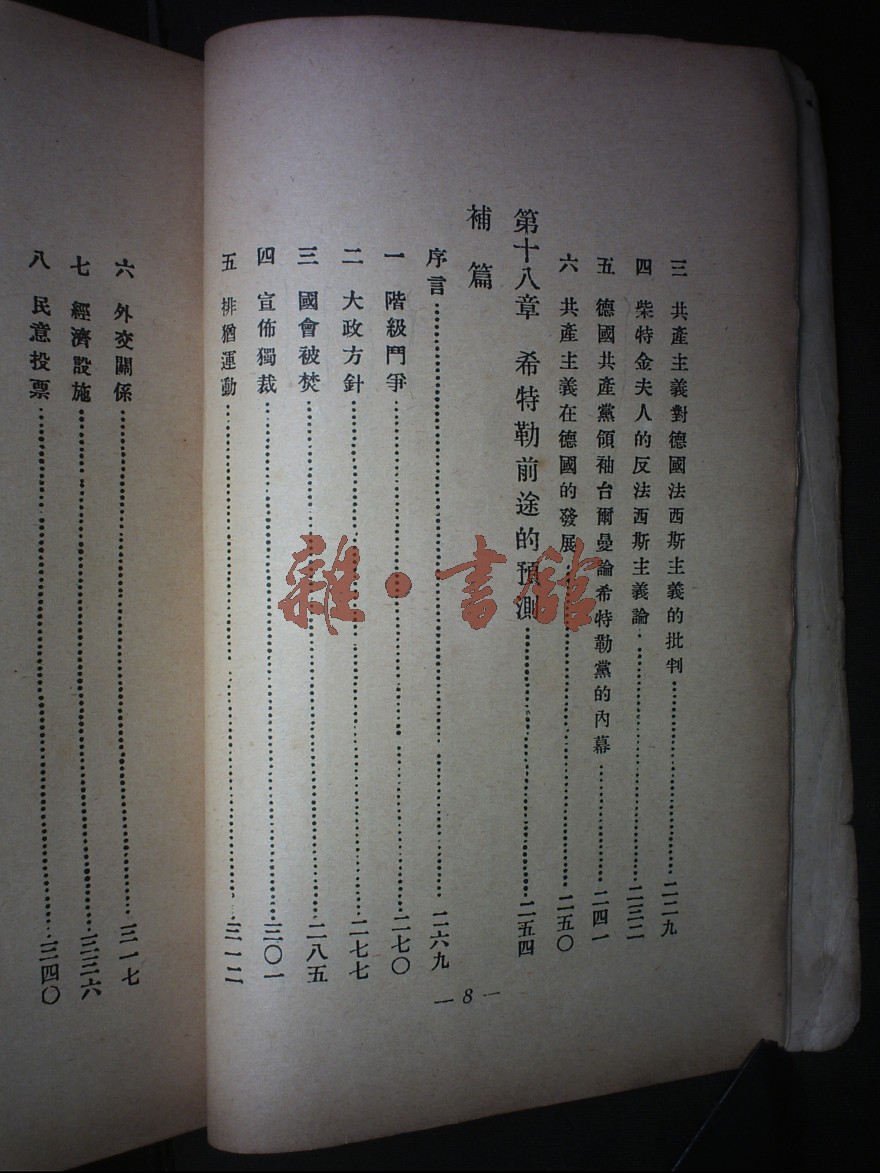 三 共產主義對德國法西斯主義的批判……二二九
四 柴特金夫人的反法西斯主義論……二三二
五 德國共產黨領袖台爾曼論希特勒黨的內幕……二四一
六 共產主義在德國的發展……二五〇
第十八章 希特勒前途的預測……二五四
補篇
序言……二六九
一 階級鬥爭……二七〇
二 大政方針……二七七
三 國會被焚……二八五
四 宣佈獨裁……三〇一
五 排猶運動……三一二
— 8 —
六 外交關係……三一七
七 經濟設施……三三六
八 民意投票……三四〇
雜·書館